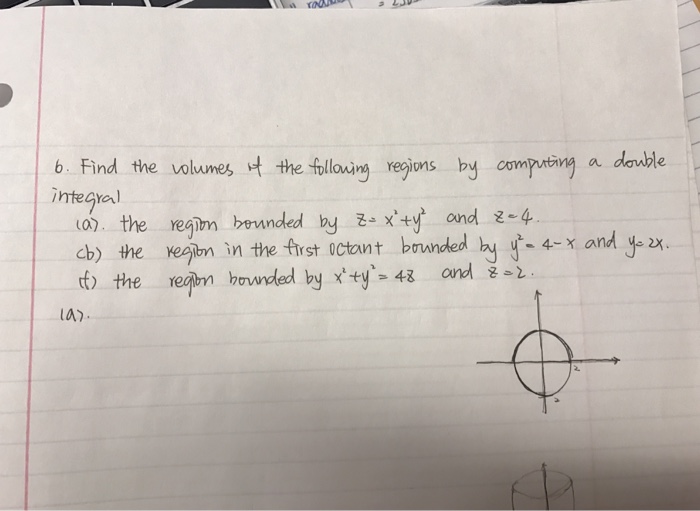 6. Find the volumes of the following regions by computing a double
integral
(a). the region bounded by z = x²+y² and z=4.
(b) the region in the first octant bounded by y² = 4-x and y=2x.
(f) the region bounded by x²+y² = 4z and z=2.
(a).
2
2